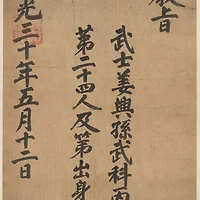 教旨
武士姜興孫武科丙
第二十四人及第出身
光三十年五月十二日